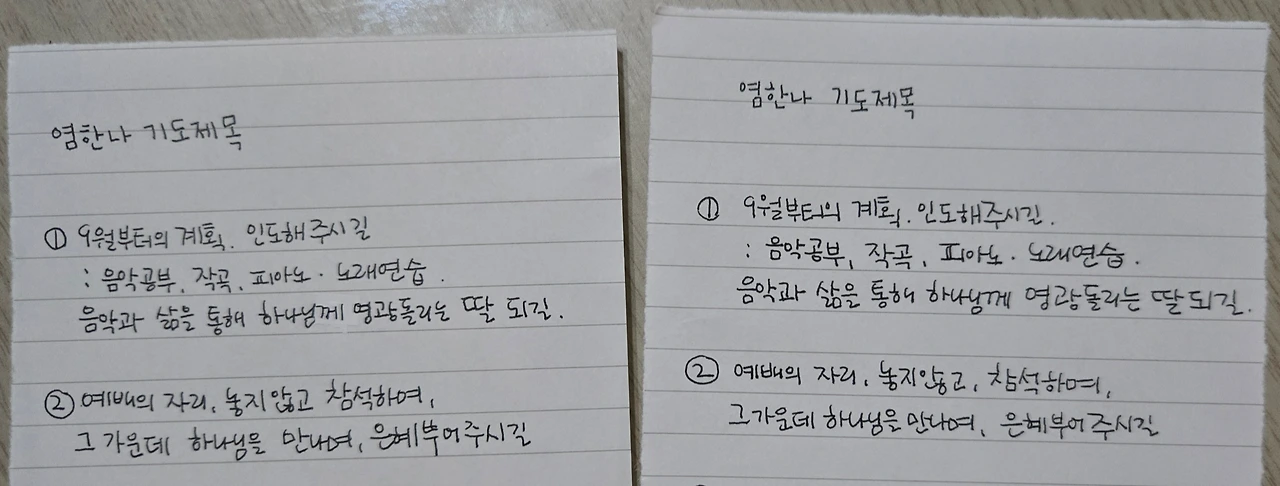 염한나 기도제목
① 9월부터의 계획. 인도해주시길
: 음악공부, 작곡, 피아노 · 노래연습.
음악과 삶을 통해 하나님께 영광돌리는 딸 되길.
② 예배의 자리, 놓지않고 참석하여,
그 가운데 하나님을 만나며, 은혜부어주시길
염한나 기도제목
① 9월부터의 계획. 인도해주시길.
: 음악공부, 작곡, 피아노 · 노래연습.
음악과 삶을 통해 하나님께 영광돌리는 딸 되길.
② 예배의 자리, 놓지않고, 참석하여,
그 가운데 하나님을 만나며, 은혜부어주시길